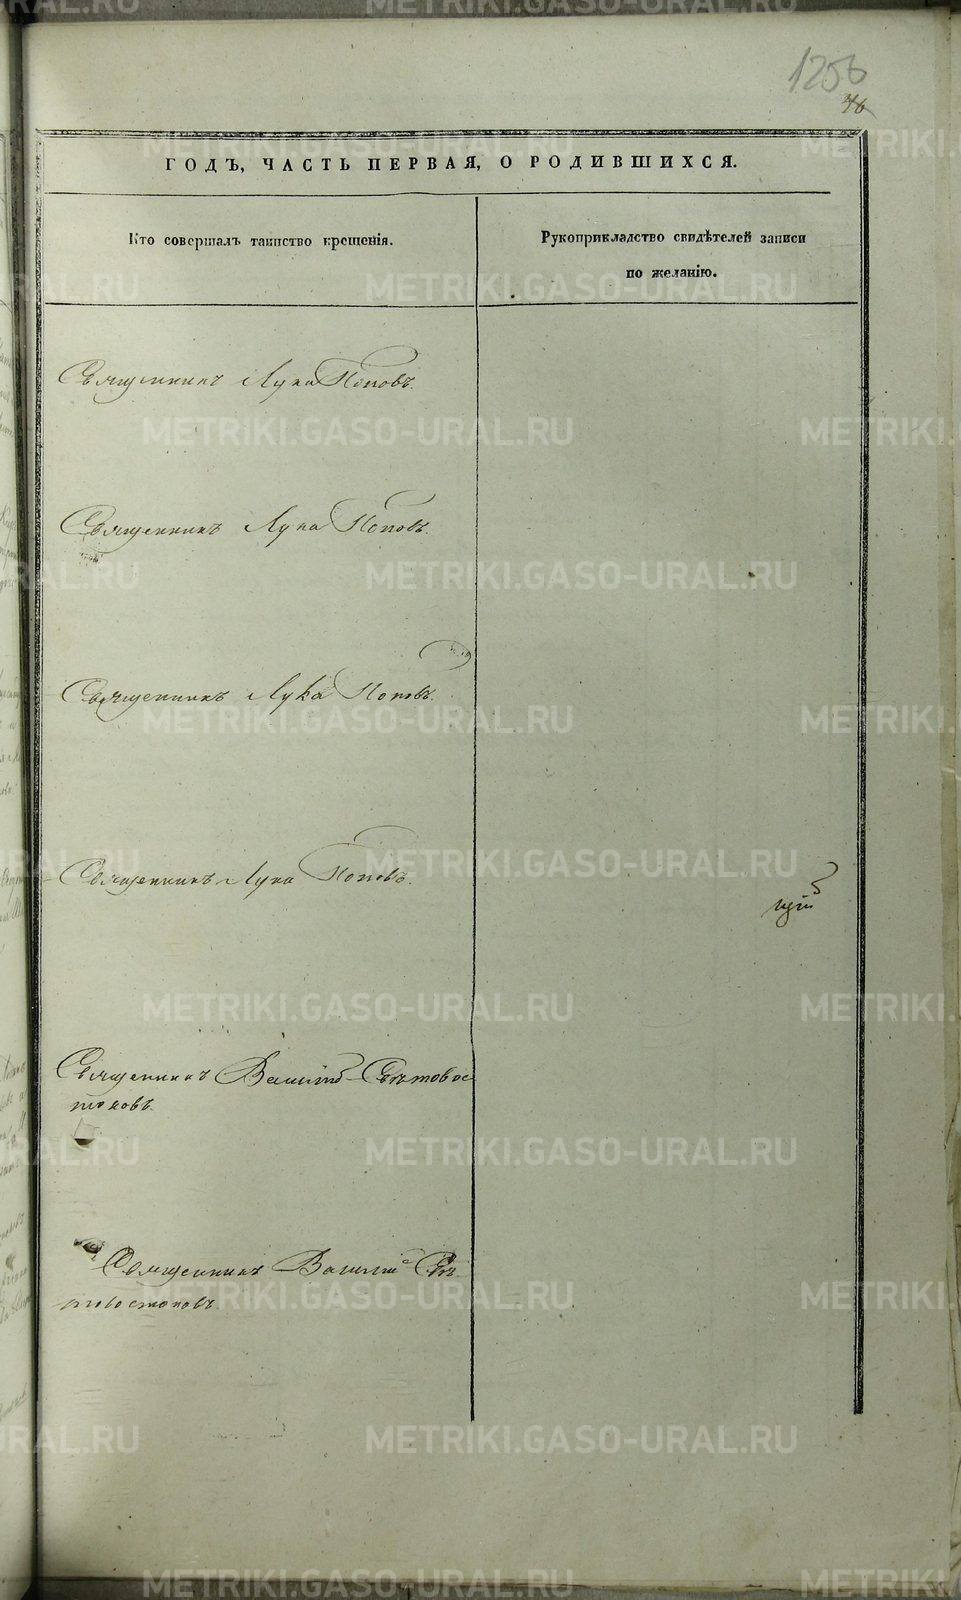 1256
46
ГОДЪ, ЧАСТЬ ПЕРВАЯ, О РОДИВШИХСЯ.
Кто совершалъ таинство крещенія.
Рукоприкладство свидѣтелей записи
по желанію.
Священникъ Лука Поповъ.
Священникъ Лука Поповъ.
Священникъ Лука Поповъ.
Священникъ Лука Поповъ.
Священникъ Василій Свѣтовос
токовъ.
Священникъ Василій Свѣ
товостоковъ.
METRIKI.GASO-URAL.RU